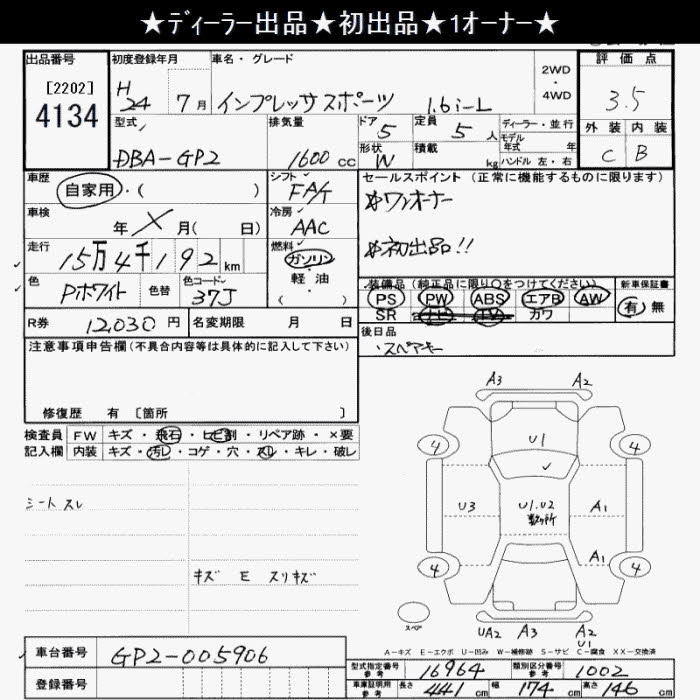 ★ディーラー出品★初出品★1オーナー★
出品番号
[2202]
4134
初度登録年月
H
24 7月
車名・グレード
インプレッサスポーツ 1.6i-L
2WD
・
4WD
評価点
3.5
外装 内装
C B
型式
DBA-GP2
排気量
1600cc
ドア
5
定員
5人
ディーラー・並行
モデル
年式 年
形状
W
積載
kg
ハンドル 左・右
車歴
自家用・( )
シフト
FAT
セールスポイント(正常に機能するものに限ります)
ワンオーナー
初出品!!
車検
年 X 月( 日)
冷房
AAC
走行
15万4千192km
燃料
ガソリン
・
軽油
( )
色
Pホワイト
色替
色コード
37J
装備品(純正品に限り○をつけてください)
PS PW ABS エアB AW
SR TV カワ
新車保証書
有・無
R券 12,030円
名変期限 月 日
後日品
・スペアキー
注意事項申告欄(不具合内容等は具体的に記入して下さい)
修復歴 有[箇所 ]
検査員 FW キズ・飛石・ヒビ割・リペア跡・×要
記入欄 内装 キズ・汚レ・コゲ・穴・スレ・キレ・破レ
シートスレ
キズ E スリキズ
A3 A2
4 U1 4
U3 U1.U2 A1
数ヶ所
A1
4 4
スペア
UA2 A3 A2
U1
A-キズ E-エクボ U-凹み W-補修跡 S-サビ C-腐食 XX-交換済
車台番号 GP2-005906
登録番号
型式指定番号 参考 16964
類別区分番号 参考 1002
車庫証明用 参考 長さ 441cm 幅 174cm 高さ 146cm